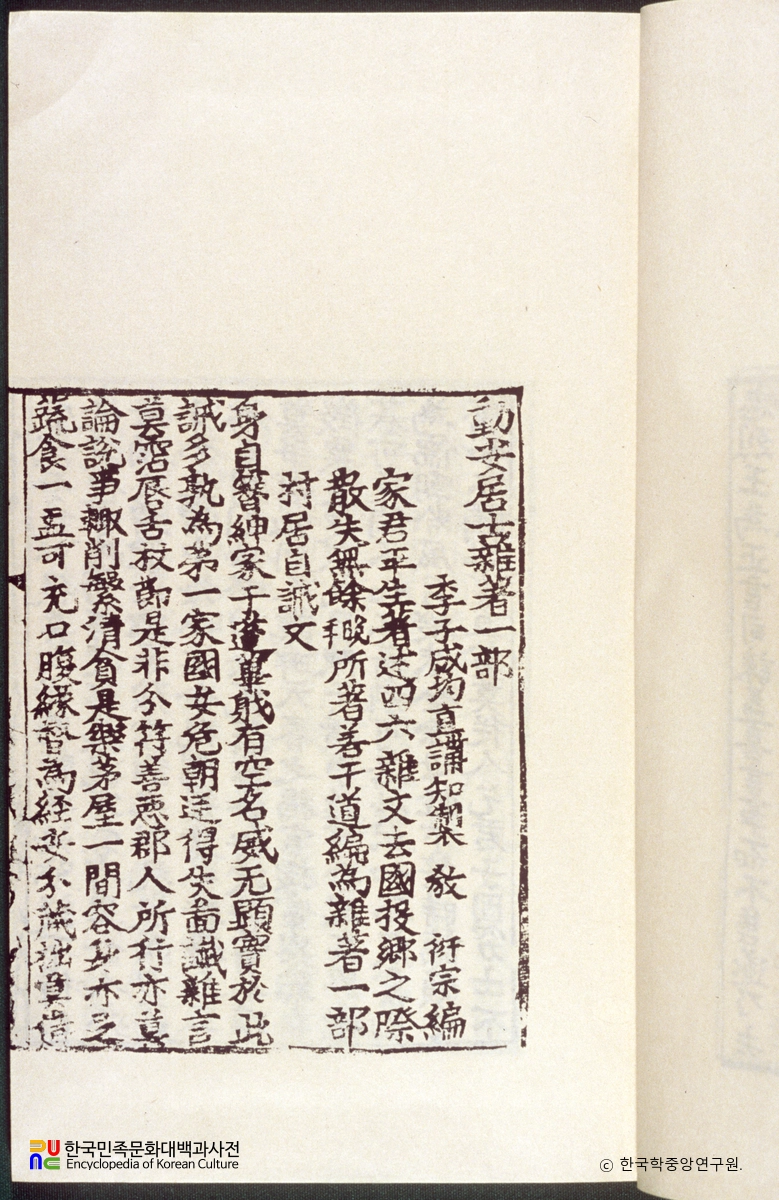 動安居士雜著一部
季子咸均直講知製 敎 衍宗編
家君平生著述四六雜文去國投鄕之際
散失無餘稚所著若干道編爲雜著一部
村居自誡文
身自簪紳家于蓬蓽躬有空名威无顯實於此
誡多孰為第一家國安危朝廷得失啚讖雜言
莫霑唇舌校節是非分符善惡郡人所行亦莫
論說事趣削繁淸貧是樂茅屋一間容身亦足
蔬食一盂可充口腹緣督為經安分藏拙莫道
한국민족문화대백과사전
Encyclopedia of Korean Culture
ⓒ 한국학중앙연구원.